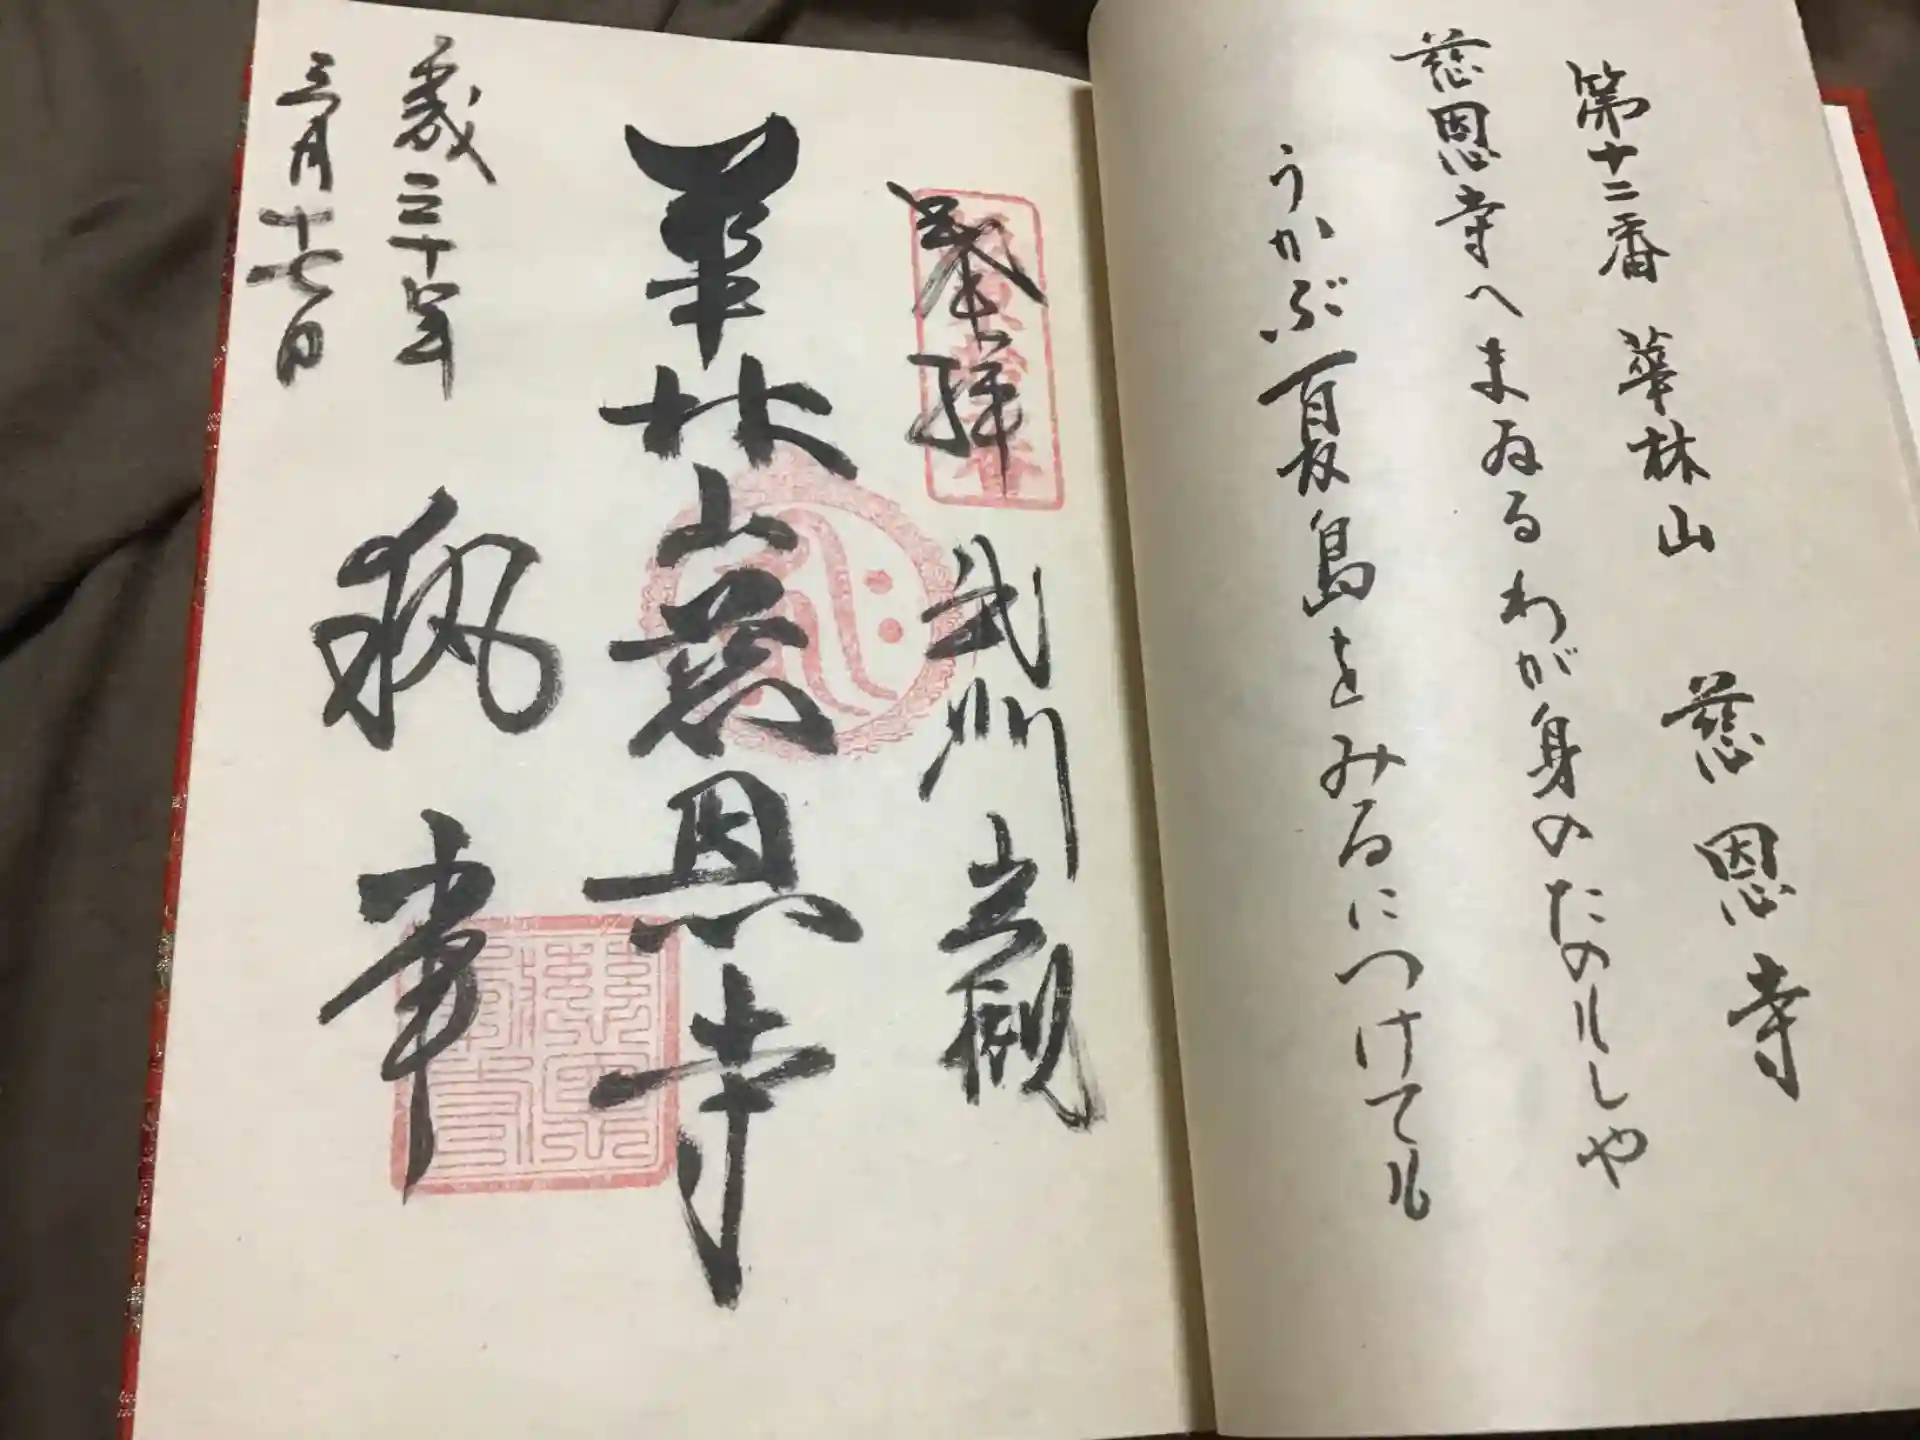 第十二番 華林山 慈恩寺
慈恩寺へまゐるわが身のたのもしや
うかぶ夏島をみるにつけても
奉拝 武州岩槻
華林山慈恩寺
平成三十年
三月十七日
執事